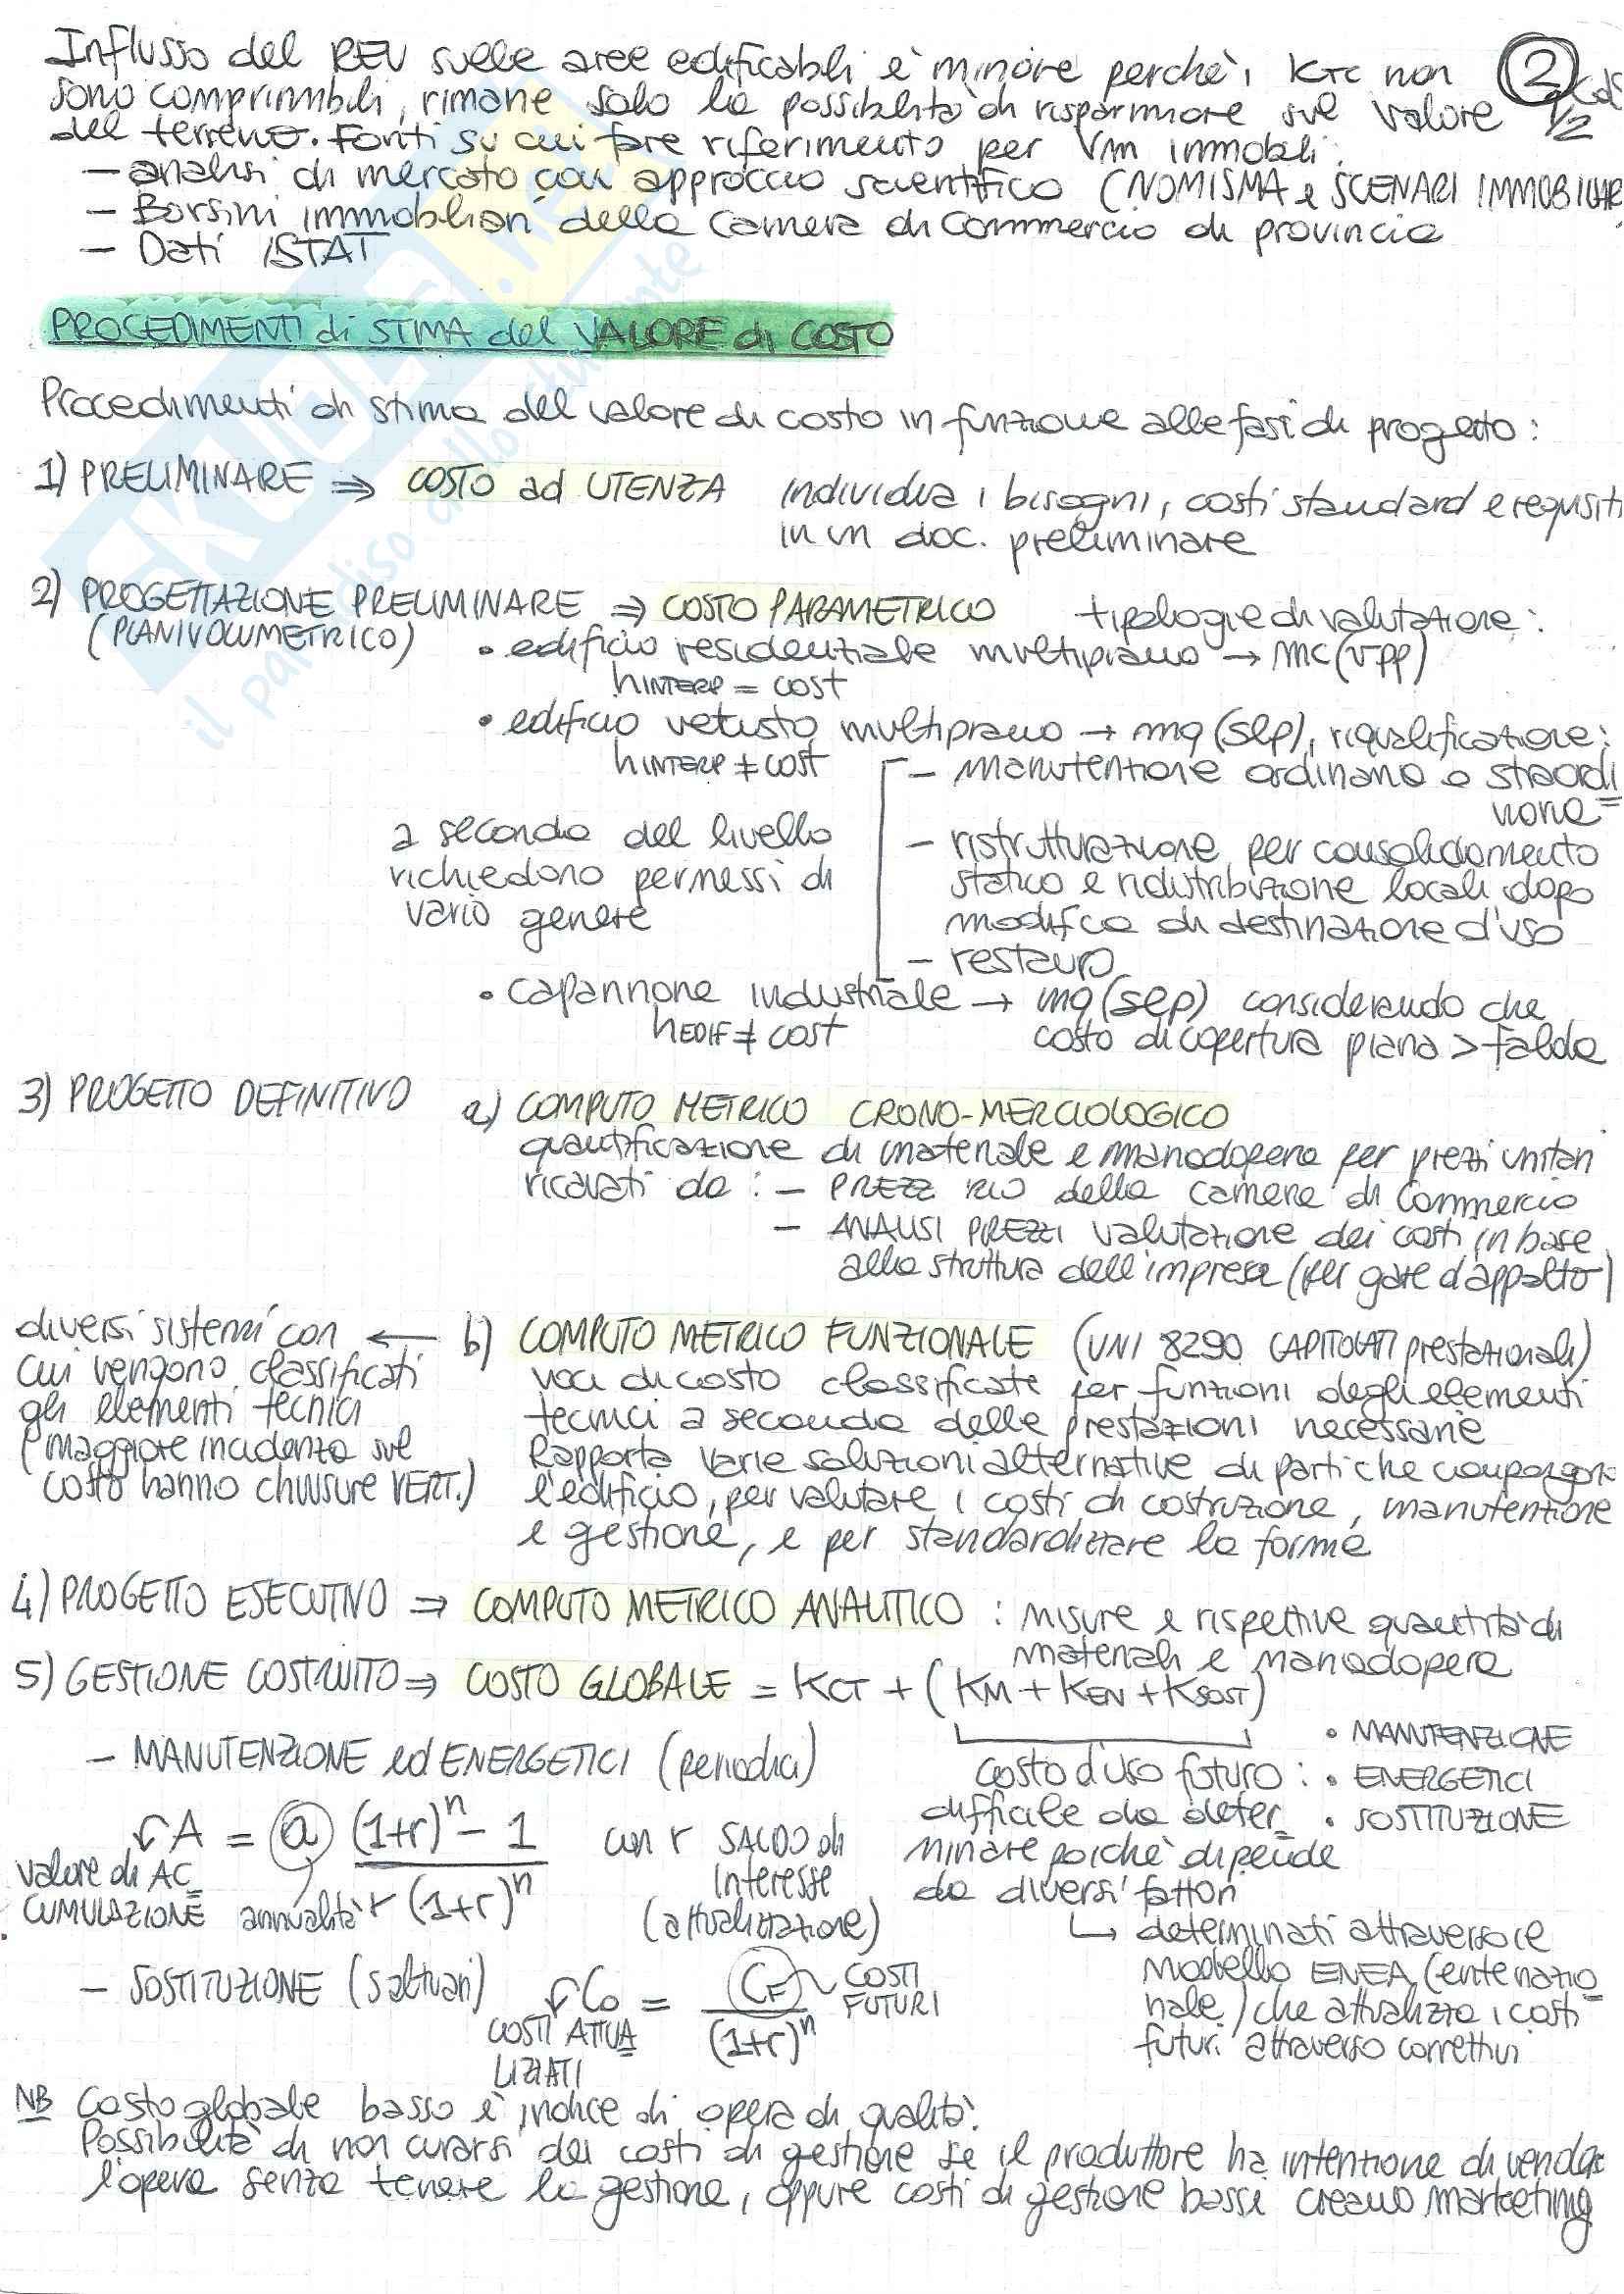 Influsso del REV sulle aree edificabili è minore perchè i KTC non
sono comprimibili, rimane solo la possibilità di risparmiare sul valore
del terreno. Fonti su cui fare riferimento per Vm immobili:
2
1/2
– analisi di mercato con approccio scientifico (NOMISMA e SCENARI IMMOBILIARI
– Borsini immobiliari della Camera di Commercio di provincia
– Dati ISTAT
PROCEDIMENTI di STIMA del VALORE di COSTO
Procedimenti di stima del valore di costo in funzione alle fasi di progetto:
1) PRELIMINARE ⇒ COSTO ad UTENZA individua i bisogni, costi standard e requisiti
in un doc. preliminare
2) PROGETTAZIONE PRELIMINARE ⇒ COSTO PARAMETRICO tipologie di valutazione:
(PLANIVOLUMETRICO)
• edificio residenziale multipiano → mc (vpp)
hINTERP = cost
• edificio vetusto multipiano → mq (slp), riqualificazione:
hINTERP ≠ cost
– manutenzione ordinaria o straordi
naria
– ristrutturazione per consolidamento
statico e ridistribuzione locali dopo
modifica di destinazione d'uso
– restauro
a seconda del livello
richiedono permessi di
vario genere
• capannone industriale → mq (slp) considerando che
hEDIF ≠ cost costo di copertura piana > falda
3) PROGETTO DEFINITIVO a) COMPUTO METRICO CRONO-MERCIOLOGICO
quantificazione di materiale e manodopera per prezzi unitari
ricavati da: – PREZZIARIO della camera di Commercio
– ANALISI PREZZI valutazione dei costi in base
alla struttura dell'impresa (per gare d'appalto)
b) COMPUTO METRICO FUNZIONALE (UNI 8290 CAPITOLATI prestazionali)
voci di costo classificate per funzioni degli elementi
tecnici a seconda delle prestazioni necessarie
Rapporta varie soluzioni alternative di parti che compongono
l'edificio, per valutare i costi di costruzione, manutenzione
e gestione, e per standardizzare la forma
diversi sistemi con ←
cui vengono classificati
gli elementi tecnici
(maggiore incidenza sul
costo hanno chiusure VERT.)
4) PROGETTO ESECUTIVO ⇒ COMPUTO METRICO ANALITICO : misure e rispettive quantità di
materiali e manodopera
5) GESTIONE COSTRUITO ⇒ COSTO GLOBALE = KCT + (KM + KEN + KSOST)
– MANUTENZIONE ed ENERGETICI (periodici)
costo d'uso futuro: • MANUTENZIONE
• ENERGETICI
• SOSTITUZIONE
difficile da deter
minare poichè dipende
da diversi fattori
↳ determinati attraverso le
modello ENEA (ente nazio
nale) che attualizza i costi
futuri attraverso correttivi
A = a (1+r)^n – 1
r (1+r)^n
valore di AC
CUMULAZIONE
annualità
con r SALDO di
interesse
(attualizzazione)
– SOSTITUZIONE (saltuari) Co = CF
(1+r)^n
COSTI ATTUA
LIZZATI
COSTI
FUTURI
NB Costo globale basso è indice di opera di qualità.
Possibilità di non curarsi dei costi di gestione se il produttore ha intenzione di vendere
l'opera senza tenere la gestione, oppure costi di gestione bassi creano marketing
SKUOLA.net
il paradiso dello studente